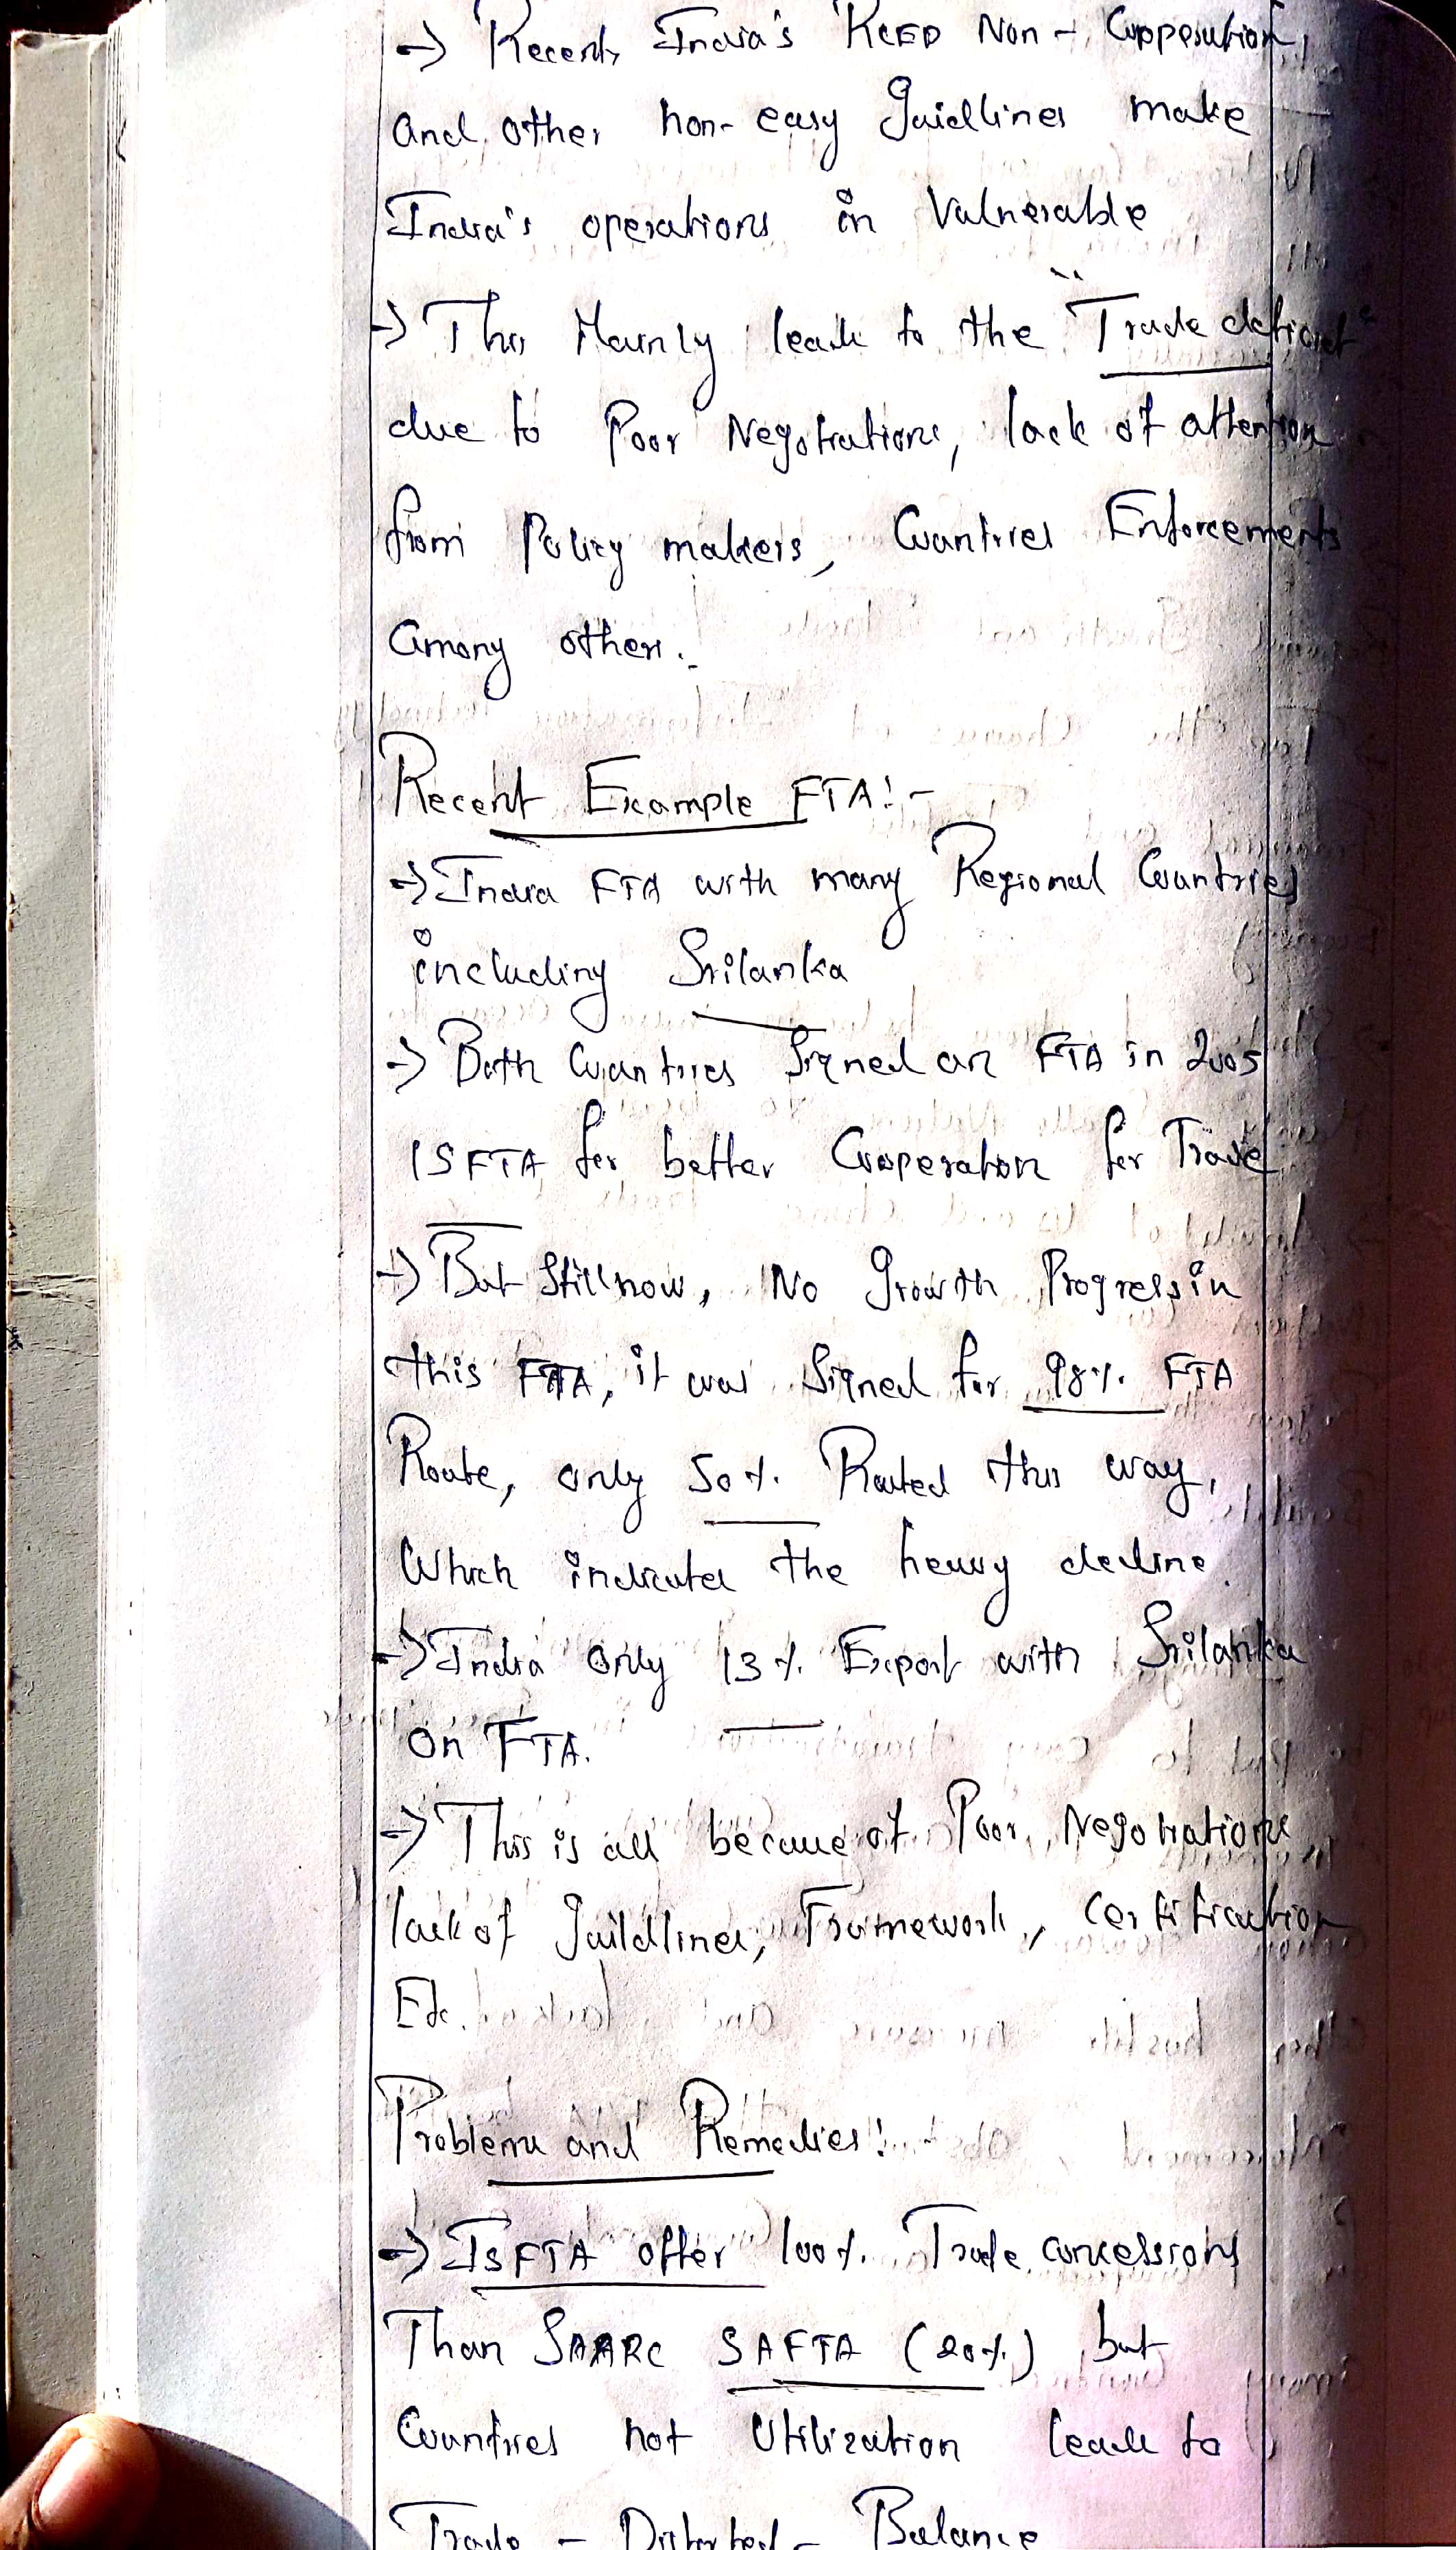 → Recent, India's RCEP Non - Cooperation,
and other non-easy Guidlines make
India's operations in Vulnerable
→ This Mainly leads to the "Trade deficit"
due to Poor Negotiations, lack of attention
from Policy makers, Countries Enforcements
among others.
Recent Example FTA:-
→ India FTA with many Regional Countries
including Srilanka
→ Both Countries Signed an FTA in 2005
ISFTA for better Cooperation for Trade
→ But Still now, No Growth Progress in
this FTA, it was Signed for 98% FTA
Route, only 50% Routed this way,
Which indicates the heavy decline.
→ India only 13% Export with Srilanka
on FTA.
→ This is all because of Poor Negotiations,
lack of Guildlines, Framework, Certification
Etc.
Problems and Remedies:
→ ISFTA offer 100% Trade concessions
Than SAARC SAFTA (20%) but
Countries not Utilization leads to
Trade - Distorted - Balance